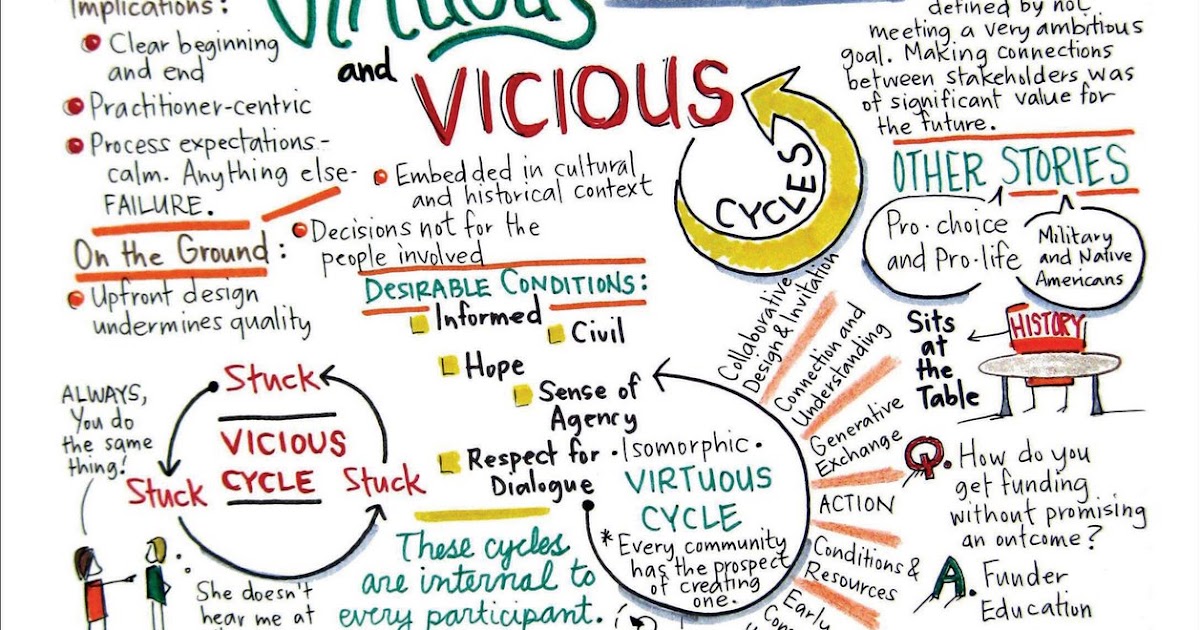 Implications:
Clear beginning
and end
Practitioner-centric
Process expectations-
calm. Anything else-
FAILURE.
On the Ground:
Upfront design
undermines quality
Embedded in cultural
and historical context
Decisions not for the
people involved
Virtuous
and
VICIOUS
CYCLES
defined by not
meeting a very ambitious
goal. Making connections
between stakeholders was
of significant value for
the future.
OTHER STORIES
Pro-choice
and Pro-life
Military
and Native
Americans
DESIRABLE CONDITIONS:
Informed
Civil
Hope
Sense of
Agency
Respect for
Dialogue
ALWAYS,
You do
the same
thing!
Stuck
VICIOUS
CYCLE
Stuck
Stuck
She doesn't
hear me at
These cycles
are internal to
every participant.
·Isomorphic·
VIRTUOUS
CYCLE
*Every community
has the prospect
of creating
one.
Collaborative
Design & Invitation
Connection and
Understanding
Generative
Exchange
ACTION
Conditions &
Resources
Early
Sits
at
the
Table
HISTORY
Q. How do you
get funding
without promising
an outcome?
A. Funder
Education